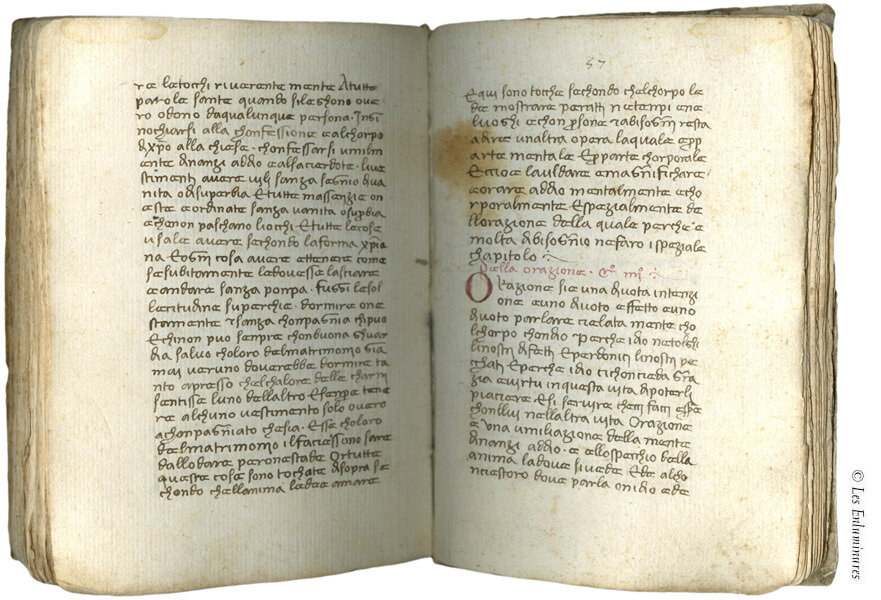 re letochi riverente mente Atutte
parole sante quando sileghono ove
ro odono daqualunque persona. Ingi
nochiarsi alla chonfessione ealchorpo
dxpo alla chiesa. chonfessarsi umilm
ente dinanzi addio ealsacierdote. live
stimenti avere vili sanza segnio diva
nita odisuperbia Etutte massenzie on
este eordinate sanza vanita osuperbia
echenon paschano liocchi Etutte lecose
usale avere sechondo laforma xpia
na Eogni cosa avere ettenere come
sesubitamente ledovesse lasciare
eandare sanza pompa. fuggi lesol
lecitudine superchie. dormire one
stamente esanza chonpagnia chipuo
Echinon puo senpre chonbuona ghuar
dia salvo choloro delmatrimonio gia
mai veruno doverebbe dormire ta
nto apresso chelchalore delle charni
sentisse luno dellaltro Esenpre tene
re alchuno vestimento solo overo
achonpagniato chesia. Esse choloro
delmatrimonio ilfaciessono sare
dallodare peronestade Ortutte
queste cose sono tochate disopra se
chondo chellanima ladee amare
57
Equi sono toche sechondo chelchorpo le
dee mostrare peratti netenpi ene
luoghi echon persone e abisogni resta
adire unaltra opera laquale epp
arte mentale Epparte chorporale
Eccioe laldare emagnifichare
eorare addio mentalmente echo
rporalmente Espezialmente de
llorazione della quale perche e
molta dibisognio nefaro ispeziale
chapitolo
Della orazione.
Orazione sie una divota intenzi
one euno divoto effetto euno
divoto parlare cielata mente cho
lchorpo chondio Perche idio netolghi
linostri difetti Eperdonici linostri pe
chati Eperche idio cichoncieda gra
zia evirtu inquesta vita dipoterli
piaciere Esi servire checi faci essere
chonllui nellaltra vita Orazione
e una umiliazione della mente
dinanzi addio. e ellospechio della
anima ladove sivede Ede alcho
nciestoro dove parla onidio ede
© Les Enluminures